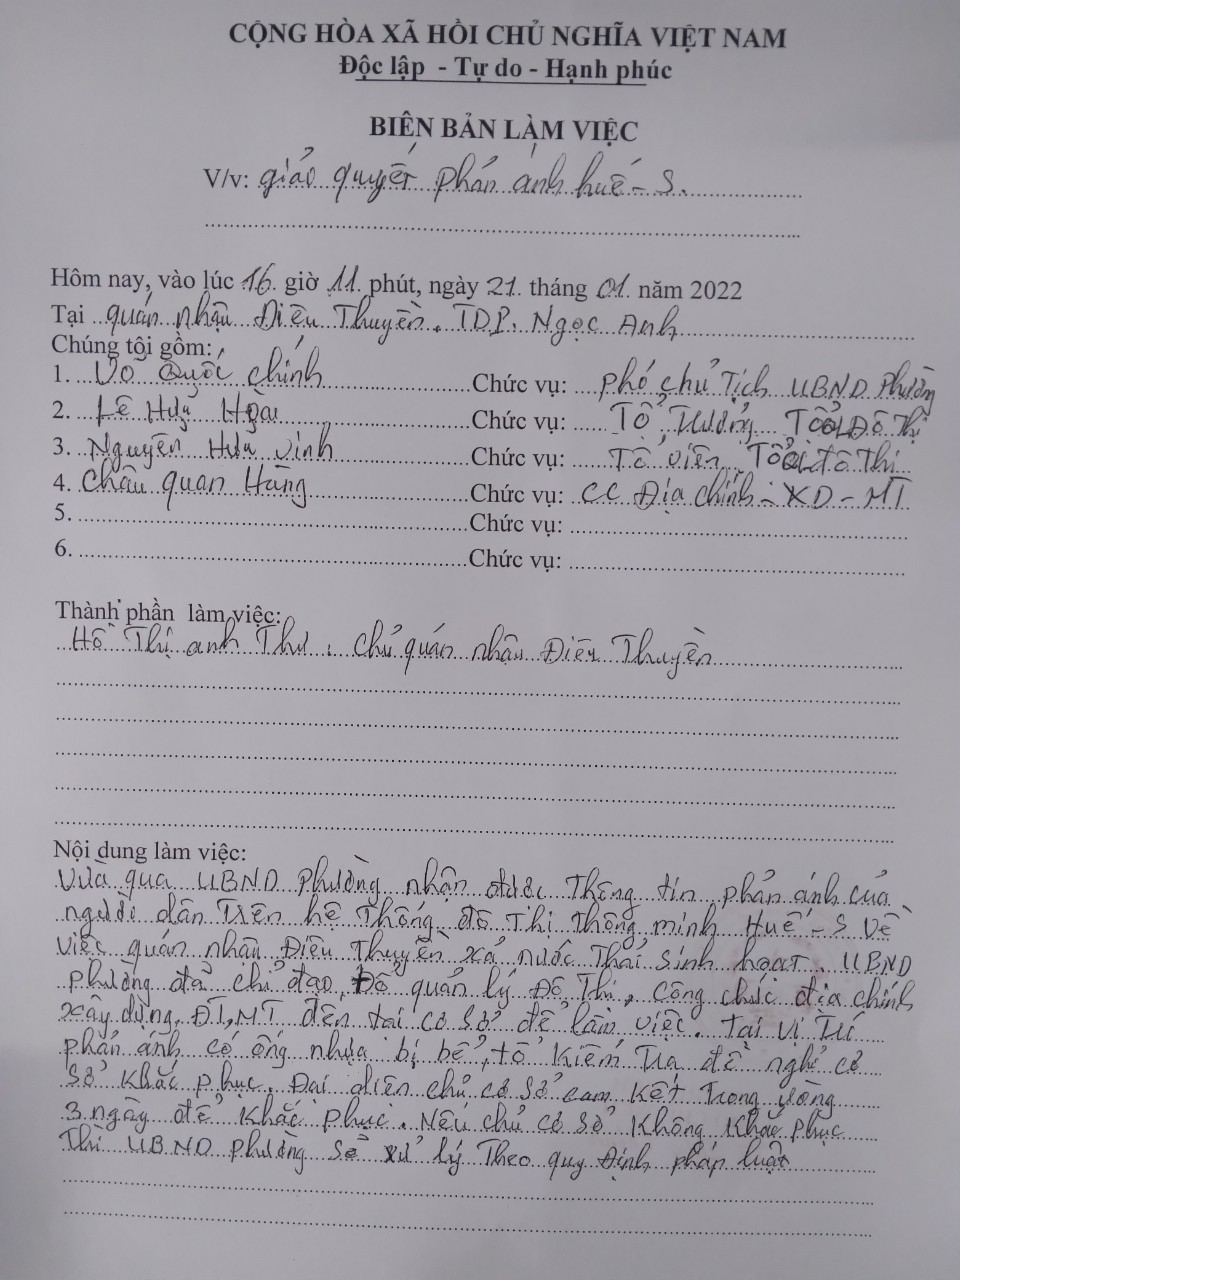 CỘNG HÒA XÃ HỒI CHỦ NGHĨA VIỆT NAM
Độc lập - Tự do - Hạnh phúc
BIÊN BẢN LÀM VIỆC
V/v: giảo quyết phản ánh huế - S.
Hôm nay, vào lúc 16 giờ 11 phút, ngày 21 tháng 01 năm 2022
Tại quán nhậu Điêu Thuyền. TDP. Ngọc Anh
Chúng tôi gồm:
1. Võ Quốc chính Chức vụ: phó chủ Tịch UBND Phường
2. Lê Hữu Hoài Chức vụ: Tổ Trưởng Tổ QL Đô Thị
3. Nguyễn Hữu Vinh Chức vụ: Tổ viên Tổ QL đô Thị
4. Châu quan Hàng Chức vụ: CC Địa chính - XD - MT
5. Chức vụ:
6. Chức vụ:
Thành phần làm việc:
Hồ Thị anh Thư, chủ quán nhậu Điêu Thuyền
Nội dung làm việc:
Vừa qua UBND Phường nhận được Thông tin phản ánh của
người dân Trên hệ Thống đô Thị Thông minh Huế - S Về
việc quán nhậu Điêu Thuyền xả nước Thải sinh hoạt. UBND
phường đã chỉ đạo Đổ quản lý Đô Thị, công chức địa chính
xây dựng, ĐT, MT đến tại cơ sở để làm việc. Tại vị Trí
phản ánh có ống nhựa bị bể, tổ kiểm Tra đề nghị cơ
sở khắc phục. Đại diện chủ cơ sở cam kết Trong vòng
3 ngày để khắc phục. Nếu chủ cơ sở không khắc phục
Thì UBND phường sẽ xử lý Theo quy Định pháp luật